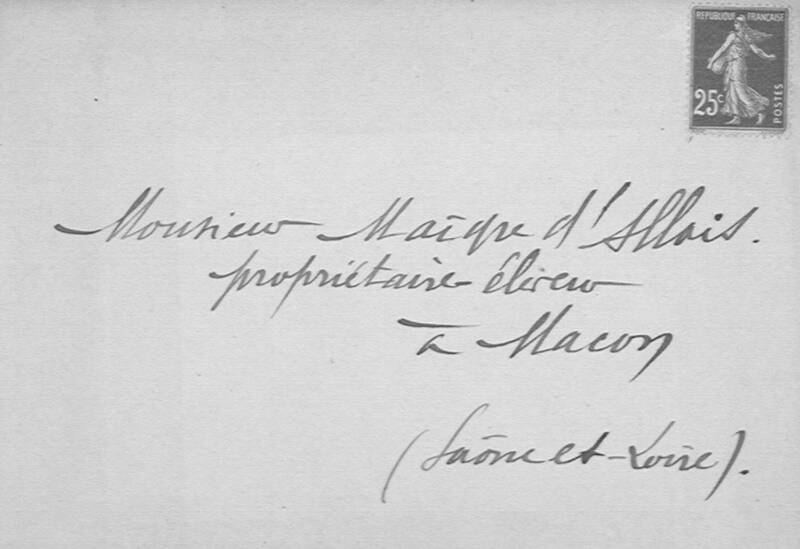 REPUBLIQUE FRANÇAISE
25c
POSTES
Monsieur Maigre d'Allois.
propriétaire éleveur
à Macon
(Saône et-Loire).